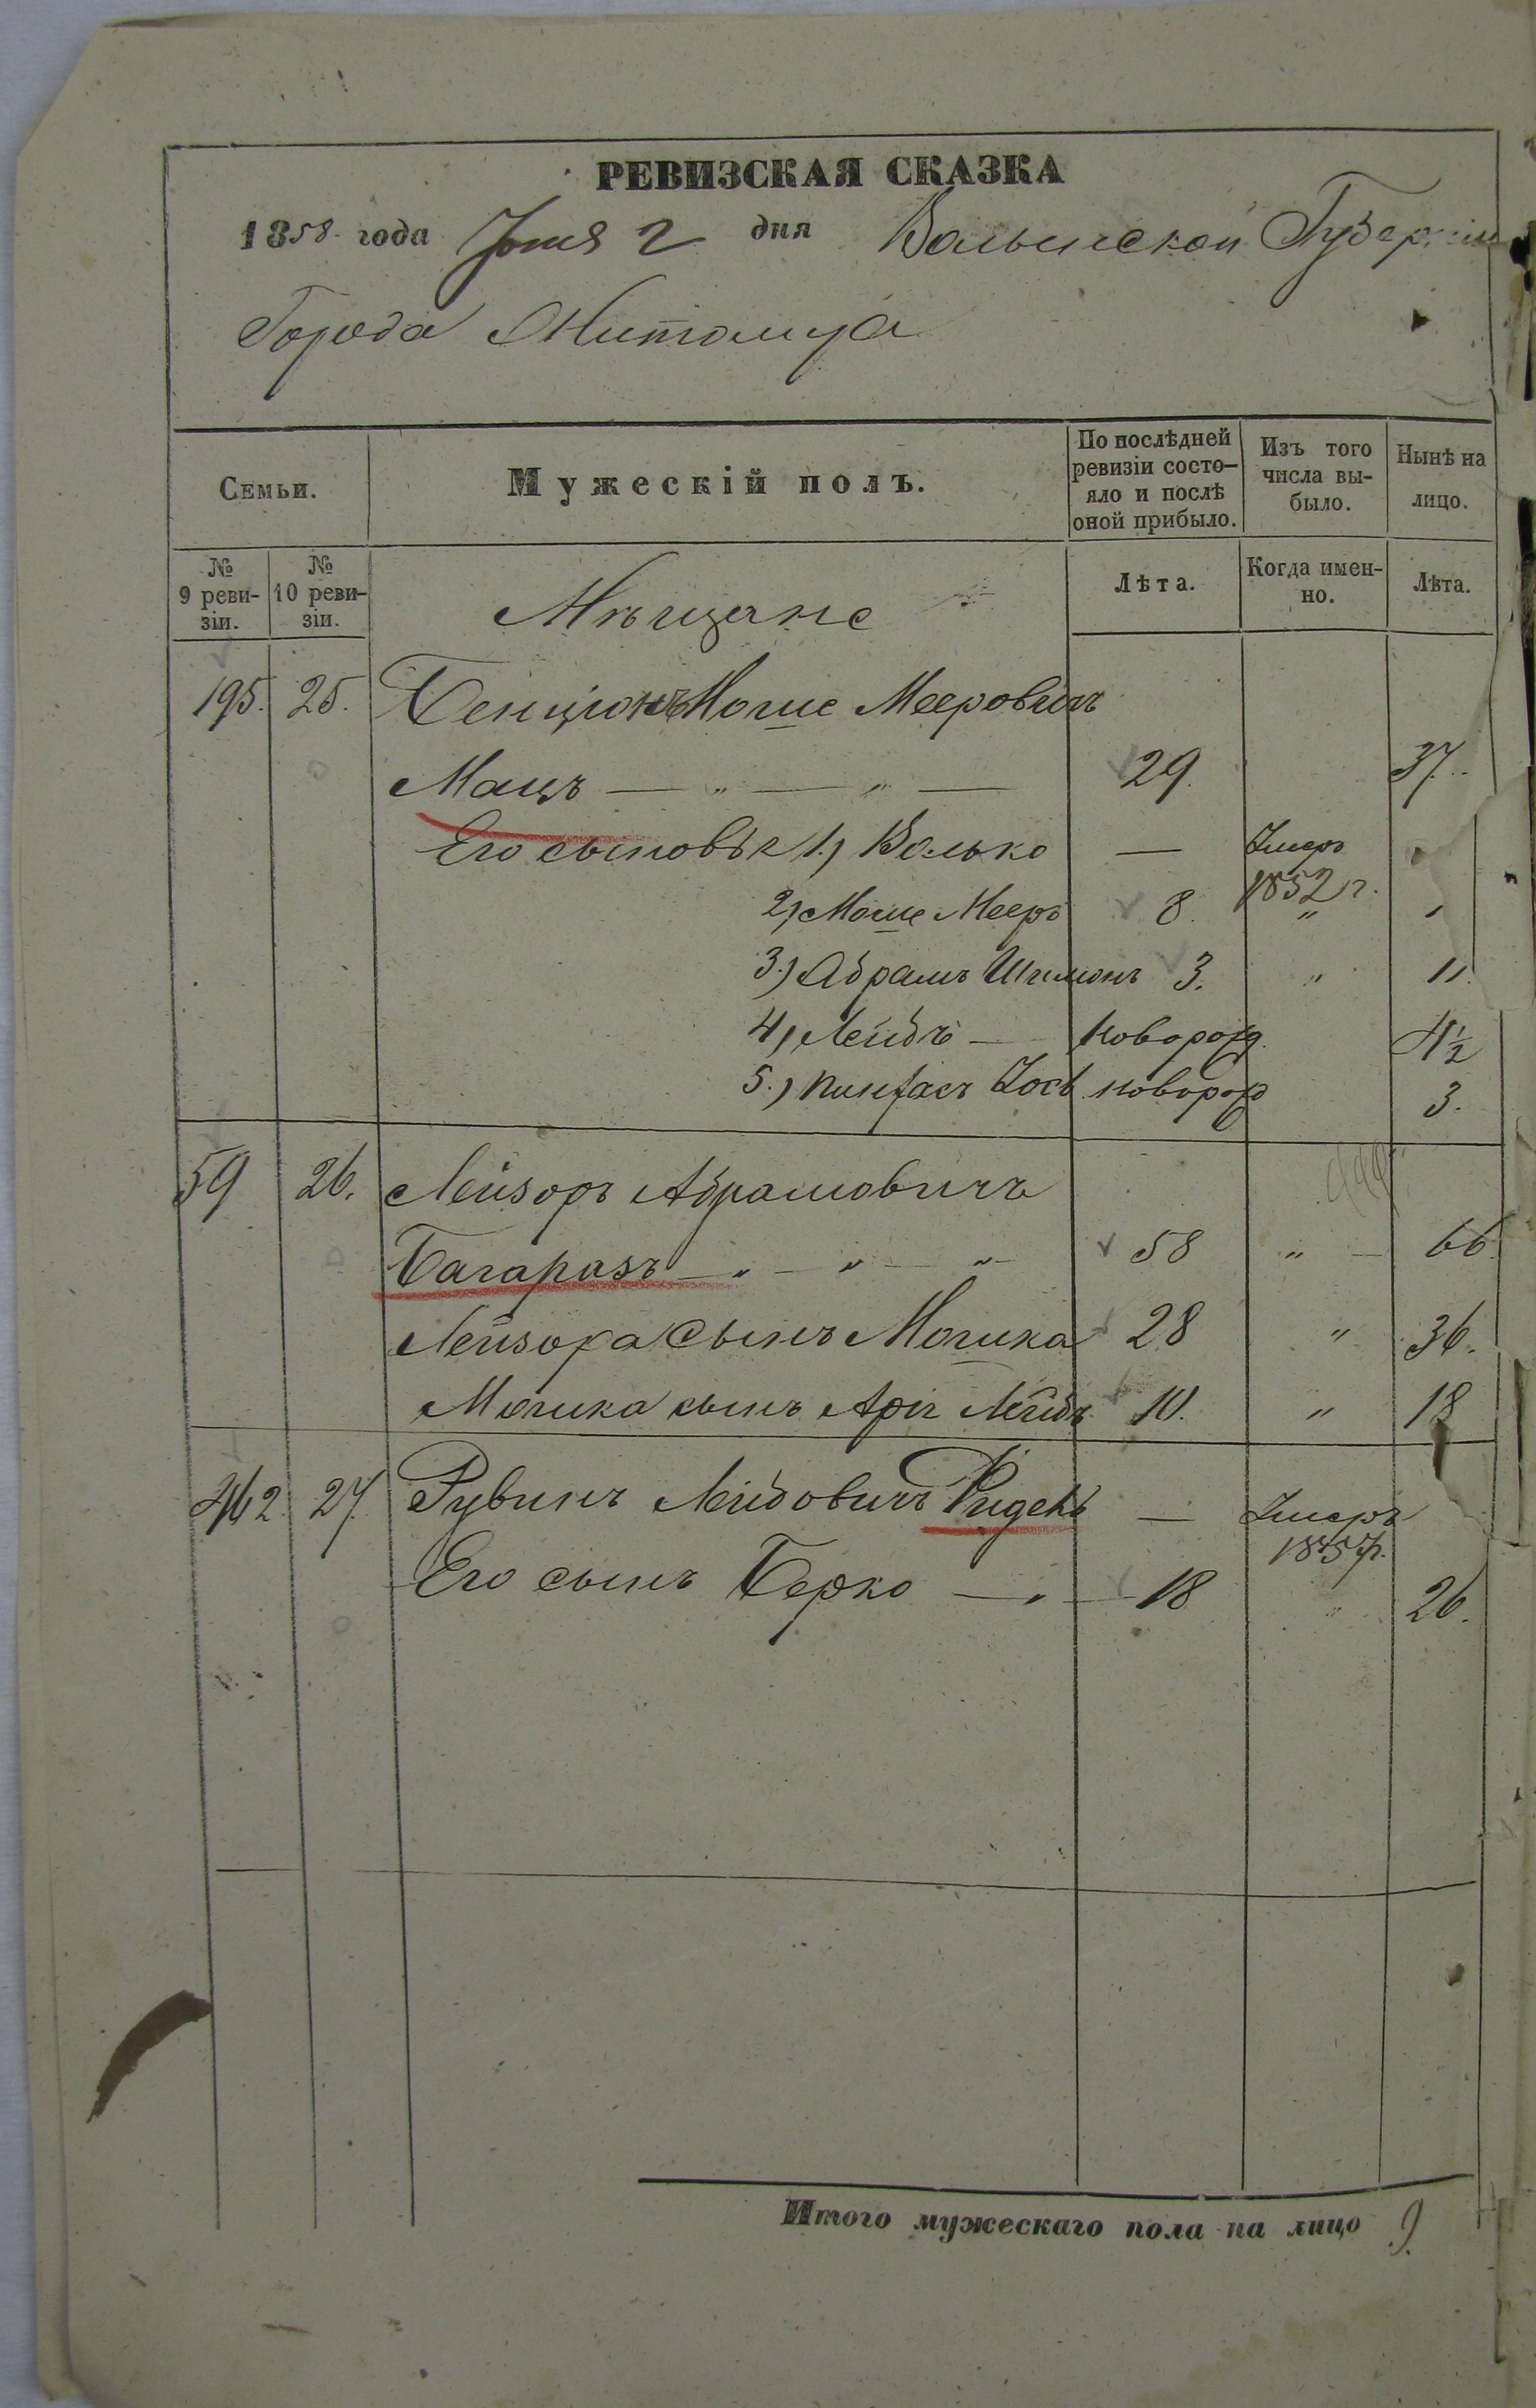 РЕВИЗСКАЯ СКАЗКА
1858 года Іюня 2 дня Волынской Губерніи
Города Житомира
Семьи.
Мужескій полъ.
По послѣдней ревизіи состо-
яло и послѣ
оной прибыло.
Изъ того
числа вы-
было.
Нынѣ на
лицо.
№
9 реви-
зіи.
№
10 реви-
зіи.
Мѣщане
Лѣта.
Когда имен-
но.
Лѣта.
195. 25. Бенціонъ Мошe Мееровичъ
Мацъ — „ — „ — 29. 37.
Его сыновья 1.) Волько — Умеръ
1852 г.
2) Мошe Мееръ 8. „ „
3.) Абрамъ Шлимонъ 3. „ 11.
4) Лейбъ — новорожд. 4½
5.) Пинхасъ Іось новорожд 3.
59 26. Лейзоръ Абрамовичъ
Багаразъ — „ — „ — „ 58 „ — 66
Лейзора сынъ Мошка 28 „ 36.
Мошка сынъ Арія Лейбъ 10. „ 18
462 27. Рувинъ Лейбовичъ — Умеръ
1857г.
Его сынъ Берко — „ — 18 „ 26.
Итого мужескаго пола на лицо 9.